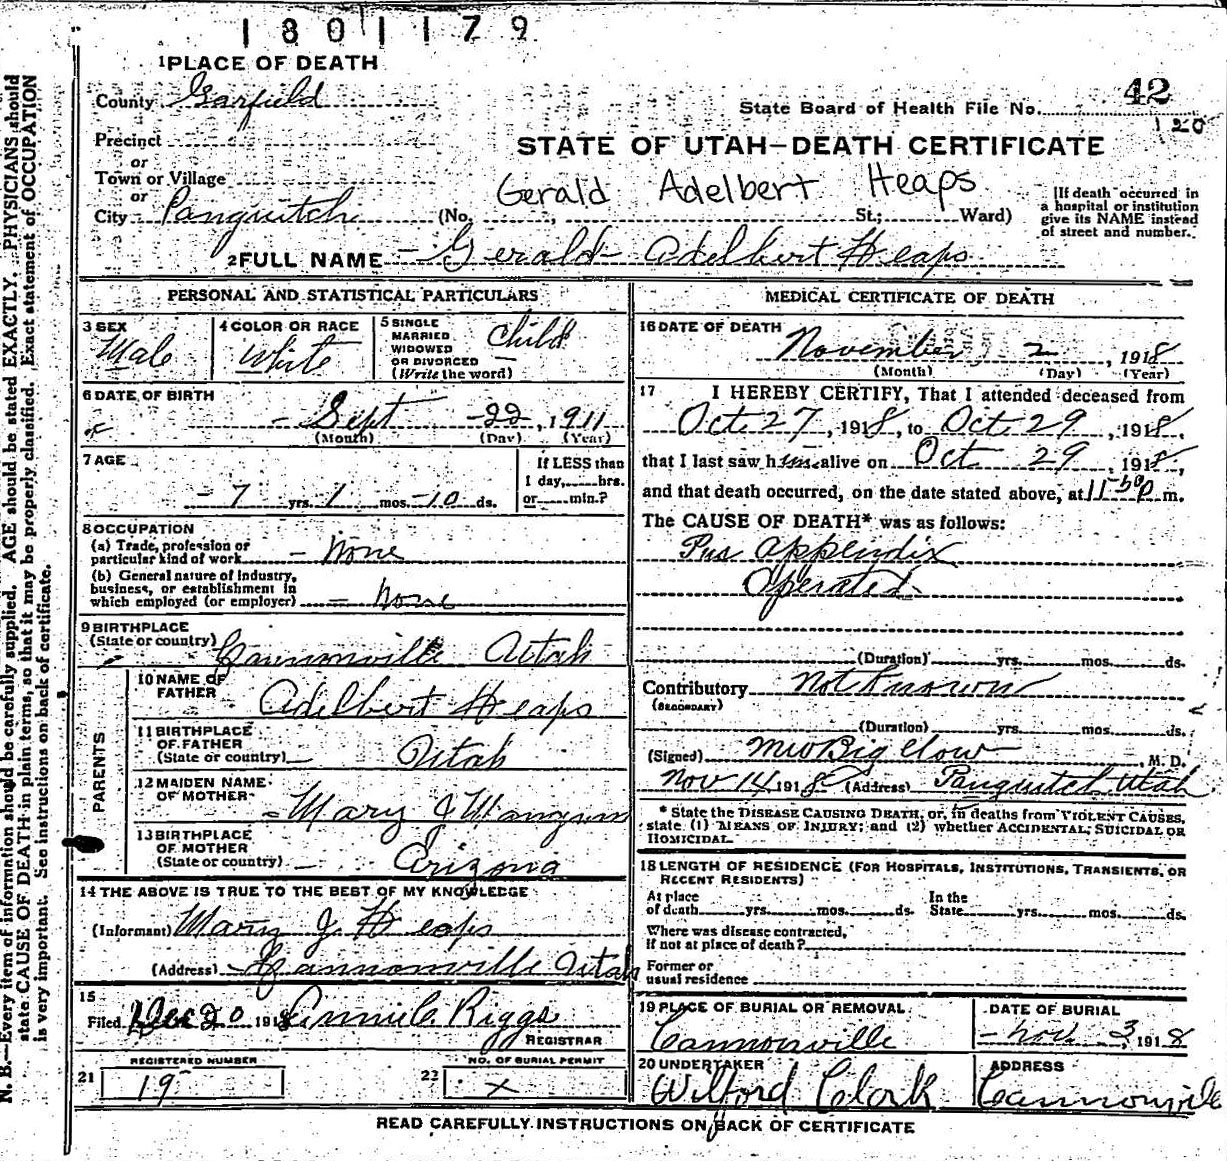 1801179
1 PLACE OF DEATH
County Garfield
42
State Board of Health File No.
120
Precinct
or
STATE OF UTAH—DEATH CERTIFICATE
Town or Village
or
Gerald Adelbert Heaps
City Panguitch (No. , St.; Ward)
[If death occurred in
a hospital or institution
give its NAME instead
of street and number.
2 FULL NAME Gerald Adelbert Heaps
PERSONAL AND STATISTICAL PARTICULARS
3 SEX
Male
4 COLOR OR RACE
White
5 SINGLE
MARRIED
WIDOWED
OR DIVORCED
(Write the word)
Child
6 DATE OF BIRTH
Sept 22, 1911
(Month) (Day) (Year)
7 AGE
7 yrs. 1 mos. 10 ds.
If LESS than
1 day, hrs.
or min.?
8 OCCUPATION
(a) Trade, profession or
particular kind of work None
(b) General nature of industry,
business, or establishment in
which employed (or employer) None
9 BIRTHPLACE
(State or country) Cannonville Utah
PARENTS
10 NAME OF
FATHER
Adelbert Heaps
11 BIRTHPLACE
OF FATHER
(State or country) Utah
12 MAIDEN NAME
OF MOTHER
Mary J Mangum
13 BIRTHPLACE
OF MOTHER
(State or country) Arizona
14 THE ABOVE IS TRUE TO THE BEST OF MY KNOWLEDGE
(Informant) Mary J. Heaps
(Address) Cannonville Utah
15
Filed Dec 20 1918 Annie C. Riggs
REGISTRAR
REGISTERED NUMBER
21 19
NO. OF BURIAL PERMIT
22 X
MEDICAL CERTIFICATE OF DEATH
16 DATE OF DEATH
November 2, 1918
(Month) (Day) (Year)
17 I HEREBY CERTIFY, That I attended deceased from
Oct. 27, 1918, to Oct. 29, 1918,
that I last saw him alive on Oct 29, 1918,
and that death occurred, on the date stated above, at 11 50 P m.
The CAUSE OF DEATH* was as follows:
Pus appendix
Operated
(Duration) yrs. mos. ds.
Contributory Not Known
(SECONDARY)
(Duration) yrs. mos. ds.
(Signed) M W Bigelow, M. D.
Nov 14 1918 (Address) Panguitch, Utah
* State the DISEASE CAUSING DEATH, or, in deaths from VIOLENT CAUSES,
state (1) MEANS OF INJURY; and (2) whether ACCIDENTAL, SUICIDAL OR
HOMICIDAL.
18 LENGTH OF RESIDENCE (FOR HOSPITALS, INSTITUTIONS, TRANSIENTS, OR
RECENT RESIDENTS)
At place In the
of death yrs. mos. ds. State yrs. mos. ds.
Where was disease contracted,
if not at place of death?
Former or
usual residence
19 PLACE OF BURIAL OR REMOVAL
Cannonville
DATE OF BURIAL
Nov. 3, 1918
20 UNDERTAKER
Wilford Clark
ADDRESS
Cannonville
READ CAREFULLY INSTRUCTIONS ON BACK OF CERTIFICATE
N. B.—Every item of information should be carefully supplied. AGE should be stated EXACTLY. PHYSICIANS should
state CAUSE OF DEATH in plain terms, so that it may be properly classified. Exact statement of OCCUPATION
is very important. See instructions on back of certificate.